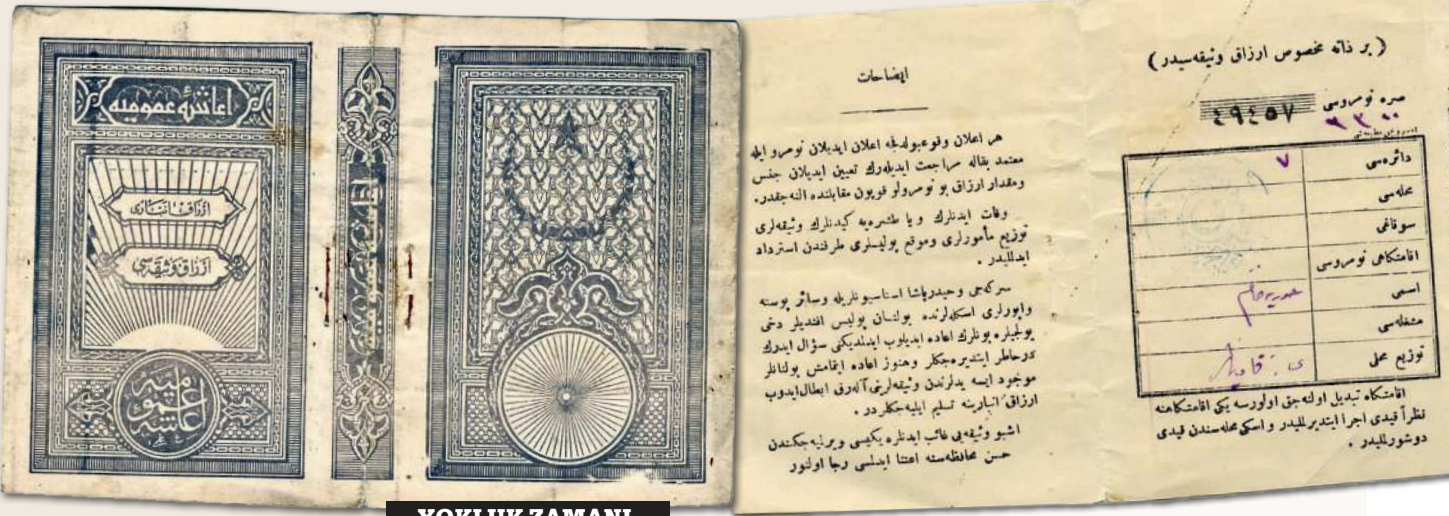 اعاشهٔ عمومیه
ارزاق انباری
ارزاق وثیقه‌سی
اعاشه
عمومیه
ایضاحات
هر اعلان وقوعبولدقجه اعلان ایدیلان نومرو ایله
معتمد بقاله مراجعت ایدیله‌رك تعیین ایدیلان جنس
ومقدار ارزاق بو نومرولو قوپون مقابلنده النه‌جقدر.
وفات ایدنلرك ویا طشره‌یه کیدنلرك وثیقه‌لری
توزیع مأمورلری وموقع پولیسلری طرفندن استرداد
ایدلملیدر .
سرکه‌جی وحیدرپاشا استاسیونلریله وسائر پوسته
واپورلری اسکله‌لرنده بولنان پولیس افندیلر دخی
یولجیلره بونلرك اعاده ایدیلوب ایدلمدیکنی سؤال ایدرك
درخاطر ایتدیره‌جکلر وهنوز اعاده ایتمامش بولنانلر
موجود ایسه یدلرندن وثیقه‌لرینی آله‌رق ابطال ایدوب
ارزاق انبارینه تسلیم ایلیه‌جکلردر .
اشبو وثیقه‌یی غائب ایدنلره یکیسی ویرلیه‌جکندن
حسن محافظه‌سنه اعتنا ایدلسی رجا اولنور
( بر ذاته مخصوص ارزاق وثیقه‌سیدر )
صره نومروسی
٤٩٤٥٧
دائره‌سی ٧
محله‌سی
سوقاغی
اقامتکاهی نومروسی
اسمی
مشغله‌سی
توزیع محلی
اقامتکاه تبدیل اولنه‌جق اولورسه یکی اقامتکاهنه
نظراً قیدی اجرا ایتدیرلملیدر و اسکی محله‌سندن قیدی
دوشورلملیدر .
YOKLUK ZAMANI